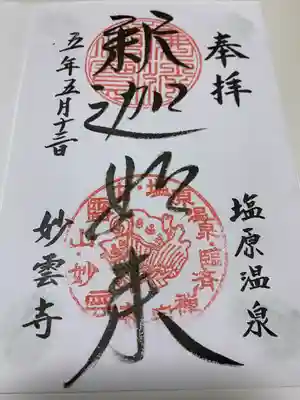 奉拝
塩原温泉
釈迦如来
五年五月十三日
妙雲寺